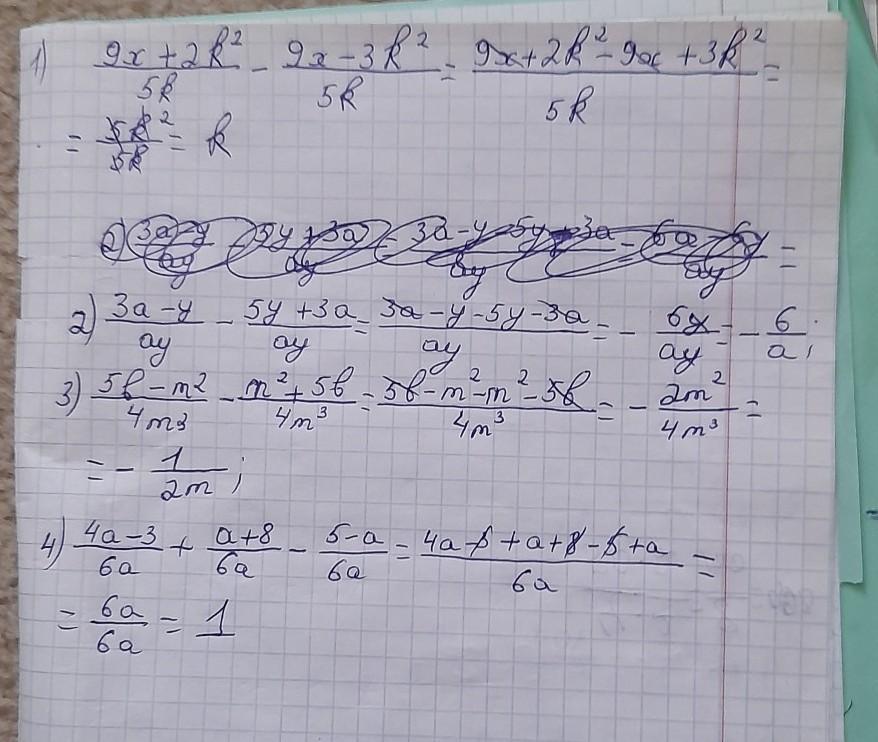 1) (9x + 2k²)/(5k) - (9x - 3k²)/(5k) = (9x + 2k² - 9x + 3k²)/(5k) =
= (5k²)/(5k) = k
2) (3a - y)/(ay) - (5y + 3a)/(ay) = (3a - y - 5y - 3a)/(ay) = - (6y)/(ay) = - 6/a;
3) (5b - m2)/(4m3) - (m² + 5b)/(4m³) = (5b - m² - m² - 5b)/(4m³) = - (2m²)/(4m³) =
= - 1/(2m);
4) (4a - 3)/(6a) + (a + 8)/(6a) - (5 - a)/(6a) = (4a - 3 + a + 8 - 5 + a)/(6a) =
= (6a)/(6a) = 1